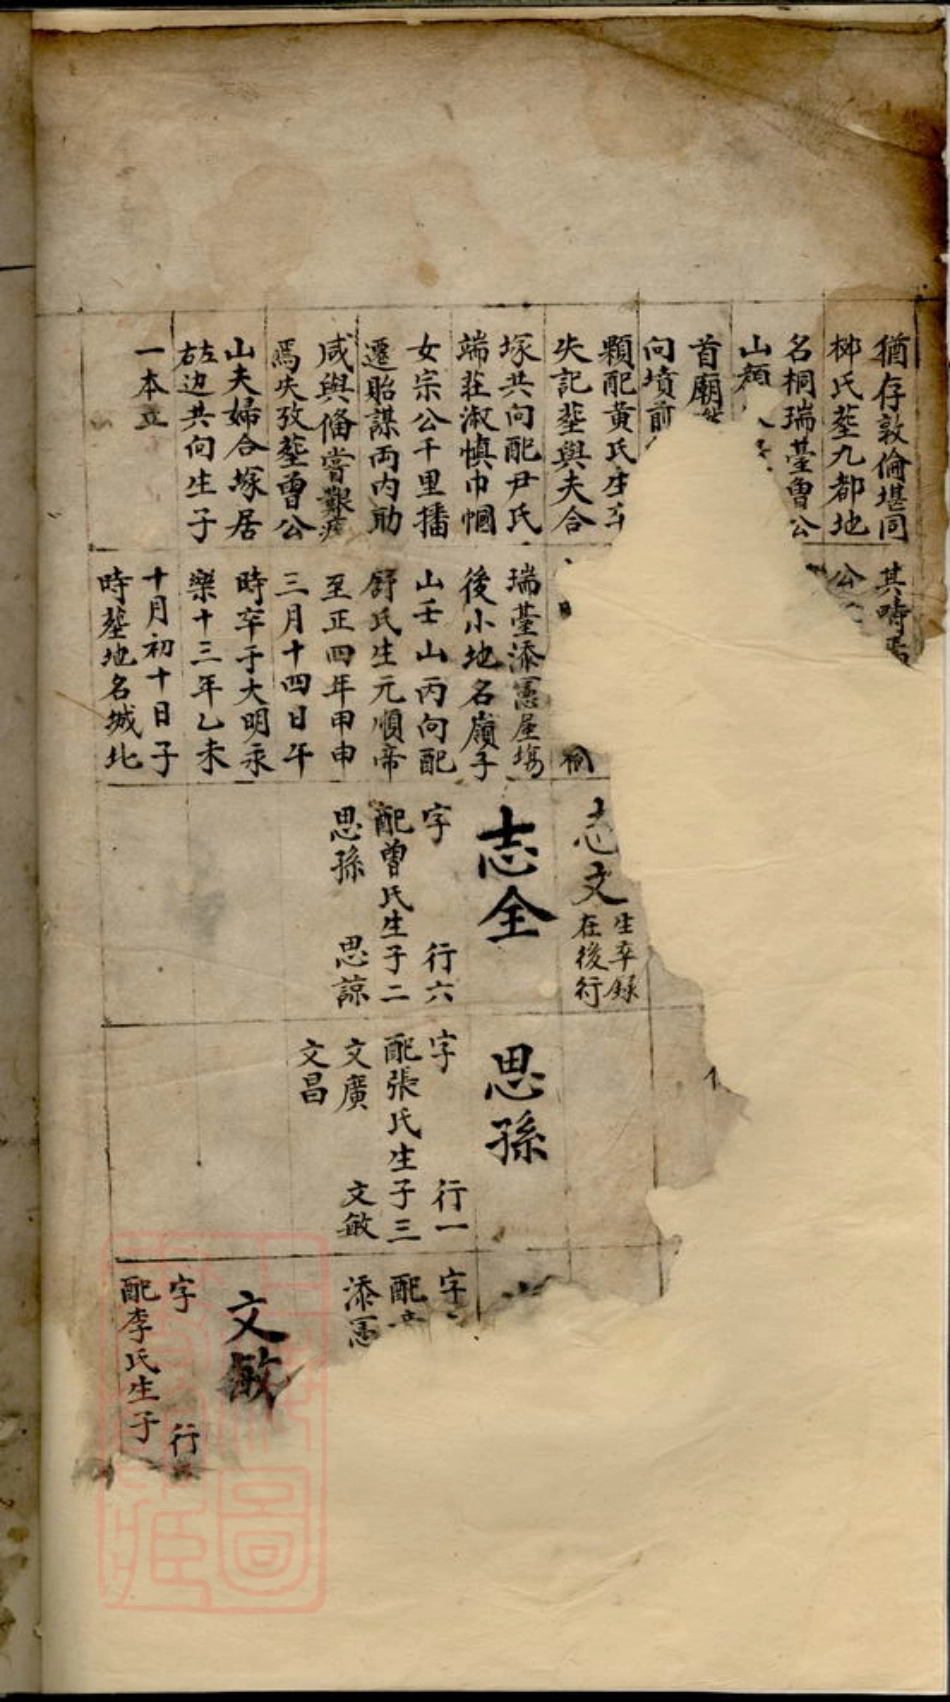 猶存敦倫堪同
柳氏塟九都地
名桐瑞臺曾公
山
首廟
向墳前
顆配黄氏生
失記塟與夫合
塚共向配尹氏
端莊淑慎巾幗
女宗公千里播
遷貽謀両内助
咸與俻嘗艱
焉失攷塟曾公
山夫婦合塚居
左右边共向生子
一本立
其時
公
瑞臺添
後小地名嶺子
山壬山丙向配
舒氏生元順帝
至正四年甲申
三月十四日午
時卒于大明永
樂十三年乙未
十月初十日子
時塟地名城北
志文
生卒録
在後行
志全
字 行六
配曽氏生子二
思孫 思諒
思孫
字 行一
配張氏生子三
文廣 文敏
文昌
字
配
添
文敏
字 行
配李氏生子